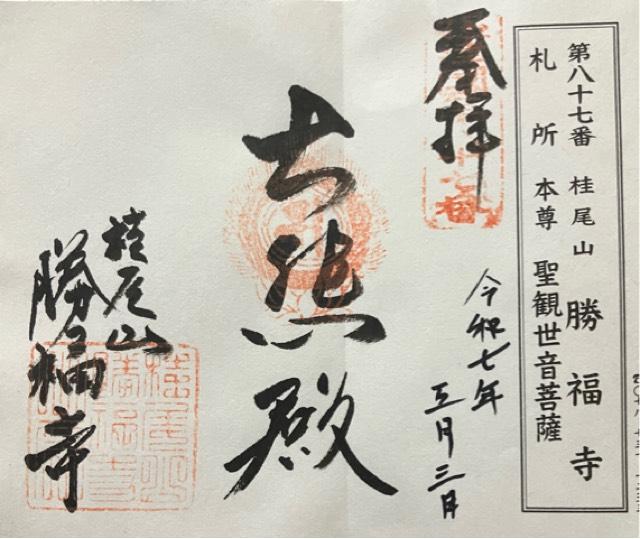 第八十七番 桂尾山 勝福寺
札所 本尊 聖観世音菩薩
奉拝
令和七年
五月三日
大悲殿
桂尾山
勝福寺